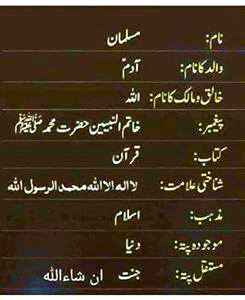 نام: مسلمان
والد کا نام: آدمؑ
خالق و مالک کا نام: اللہ
پیغمبر: خاتم النبیین حضرت محمد ﷺ
کتاب: قرآن
شناختی علامت: لا الہ الا اللہ محمد الرسول اللہ
مذہب: اسلام
موجودہ پتہ: دنیا
مستقل پتہ: جنت ان شاءاللہ